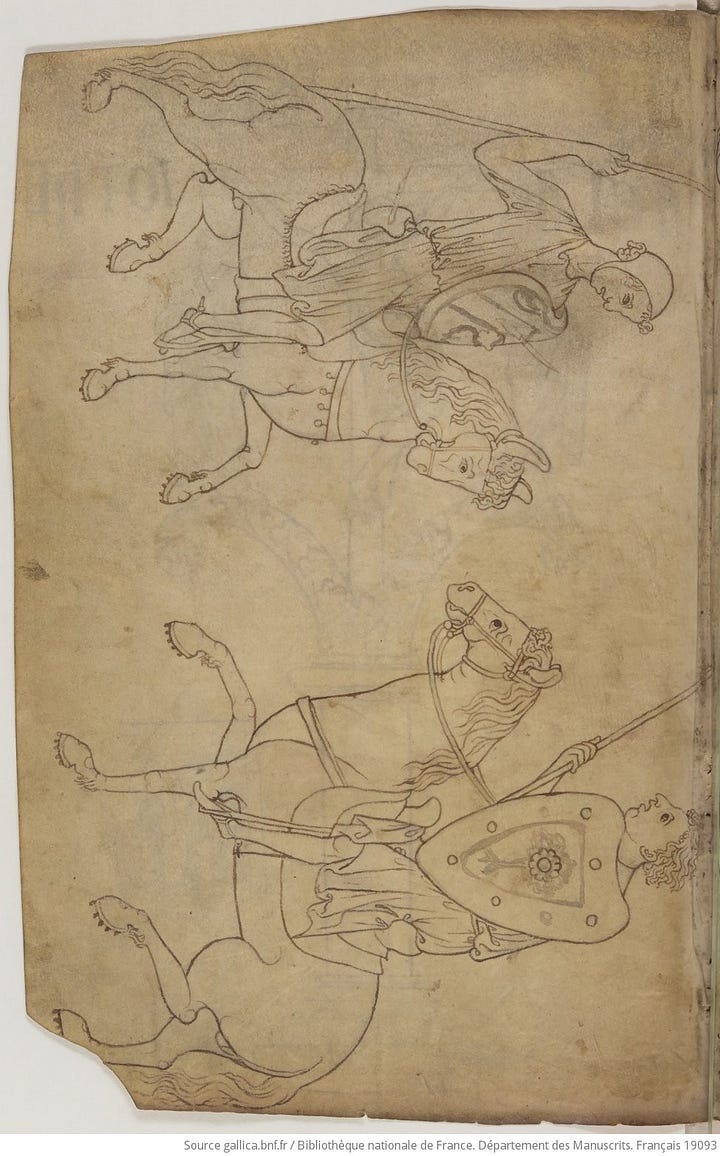 Source gallica.bnf.fr / Bibliothèque nationale de France. Département des Manuscrits. Français 19093